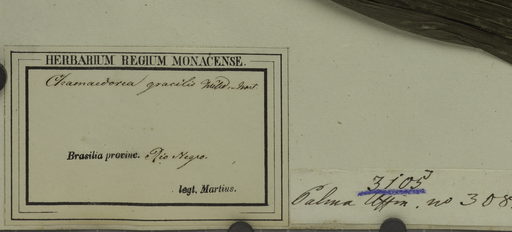 HERBARIUM REGIUM MONACENSE.
Chamaedorea gracilis Willd. Mart
Brasilia provinc. Rio Negro.
legt. Martius.
3105
Palma Affin. no 308.